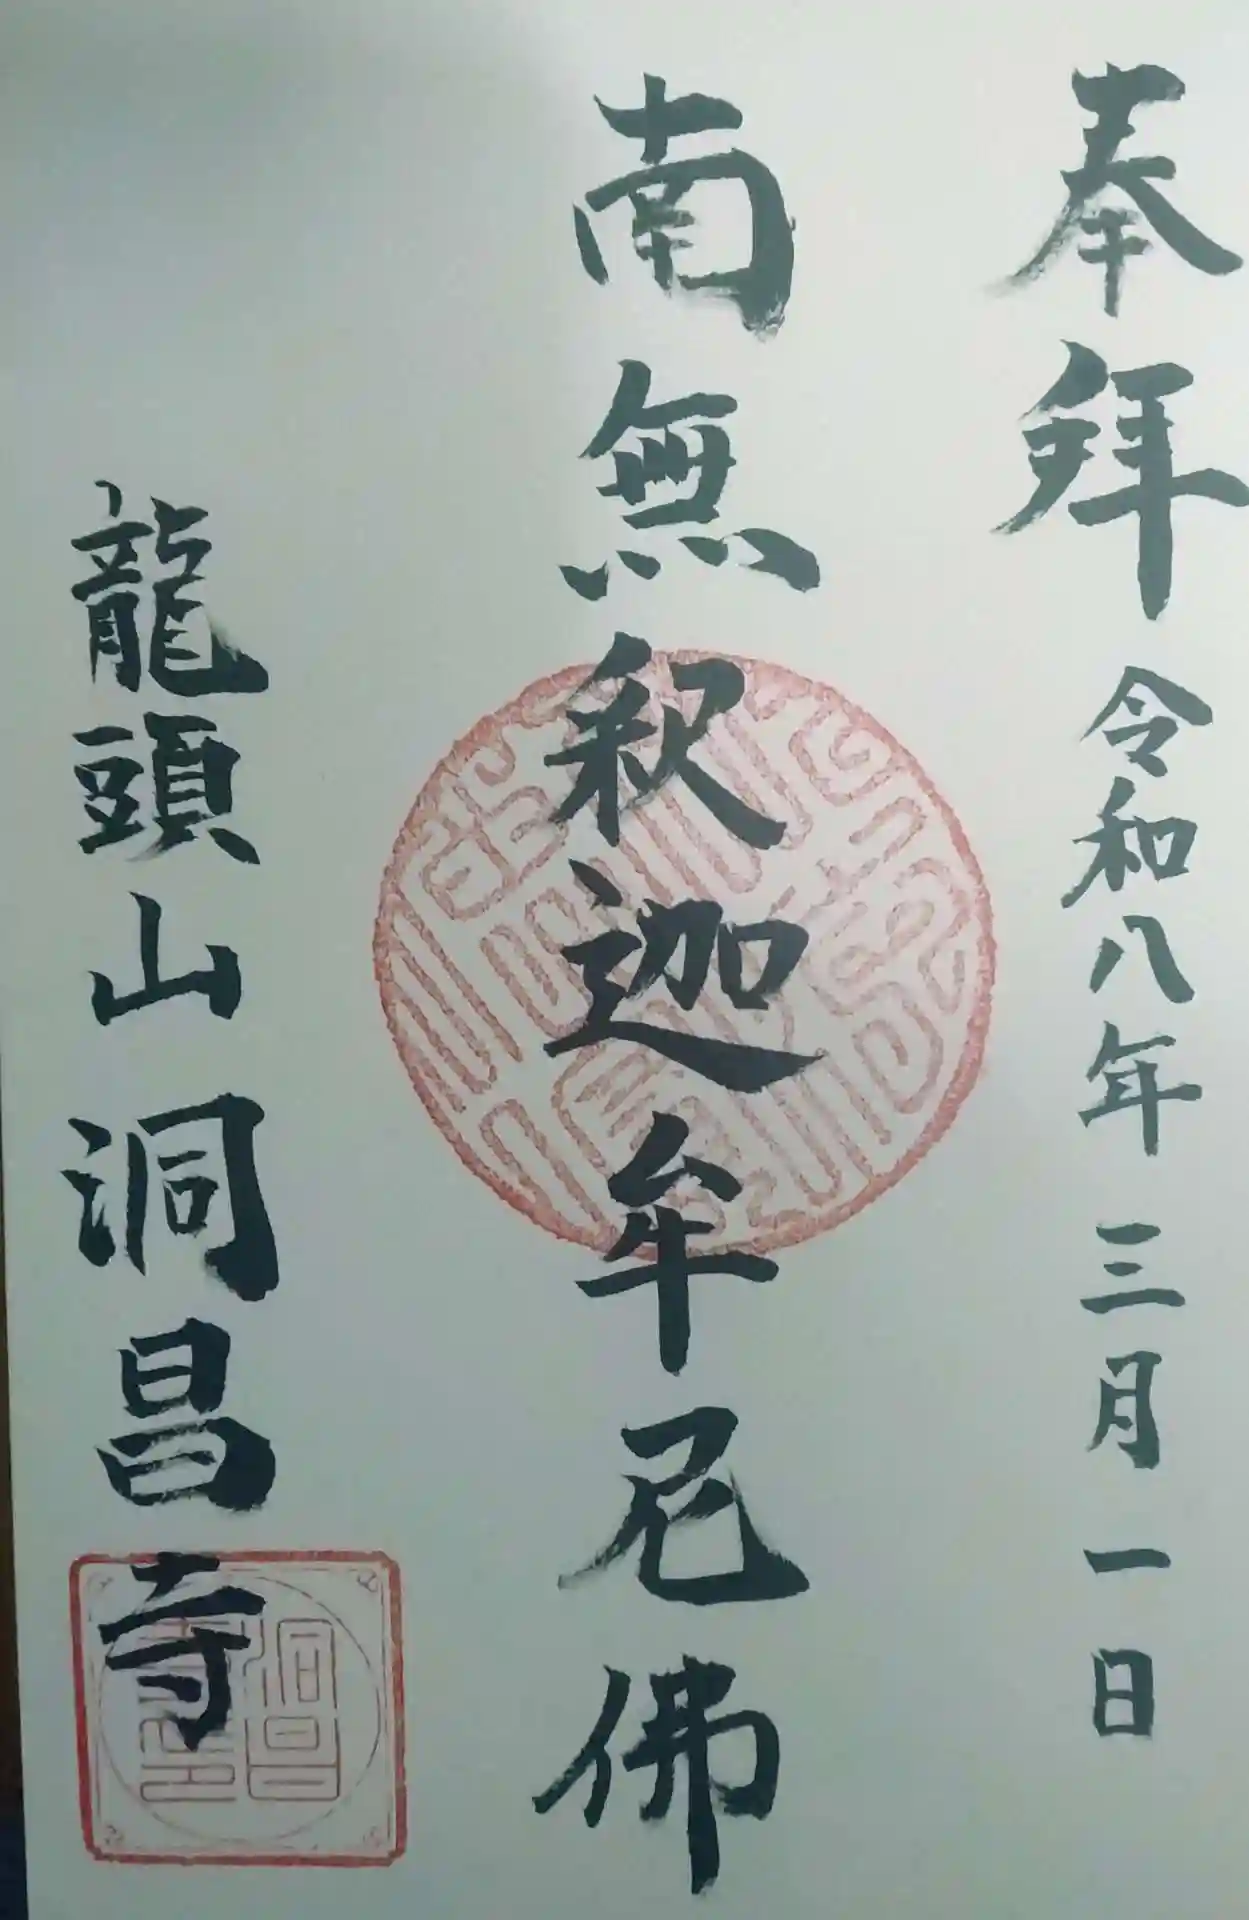 奉拜 令和八年 三月 一日
南無釈迦牟尼佛
龍頭山 洞昌寺